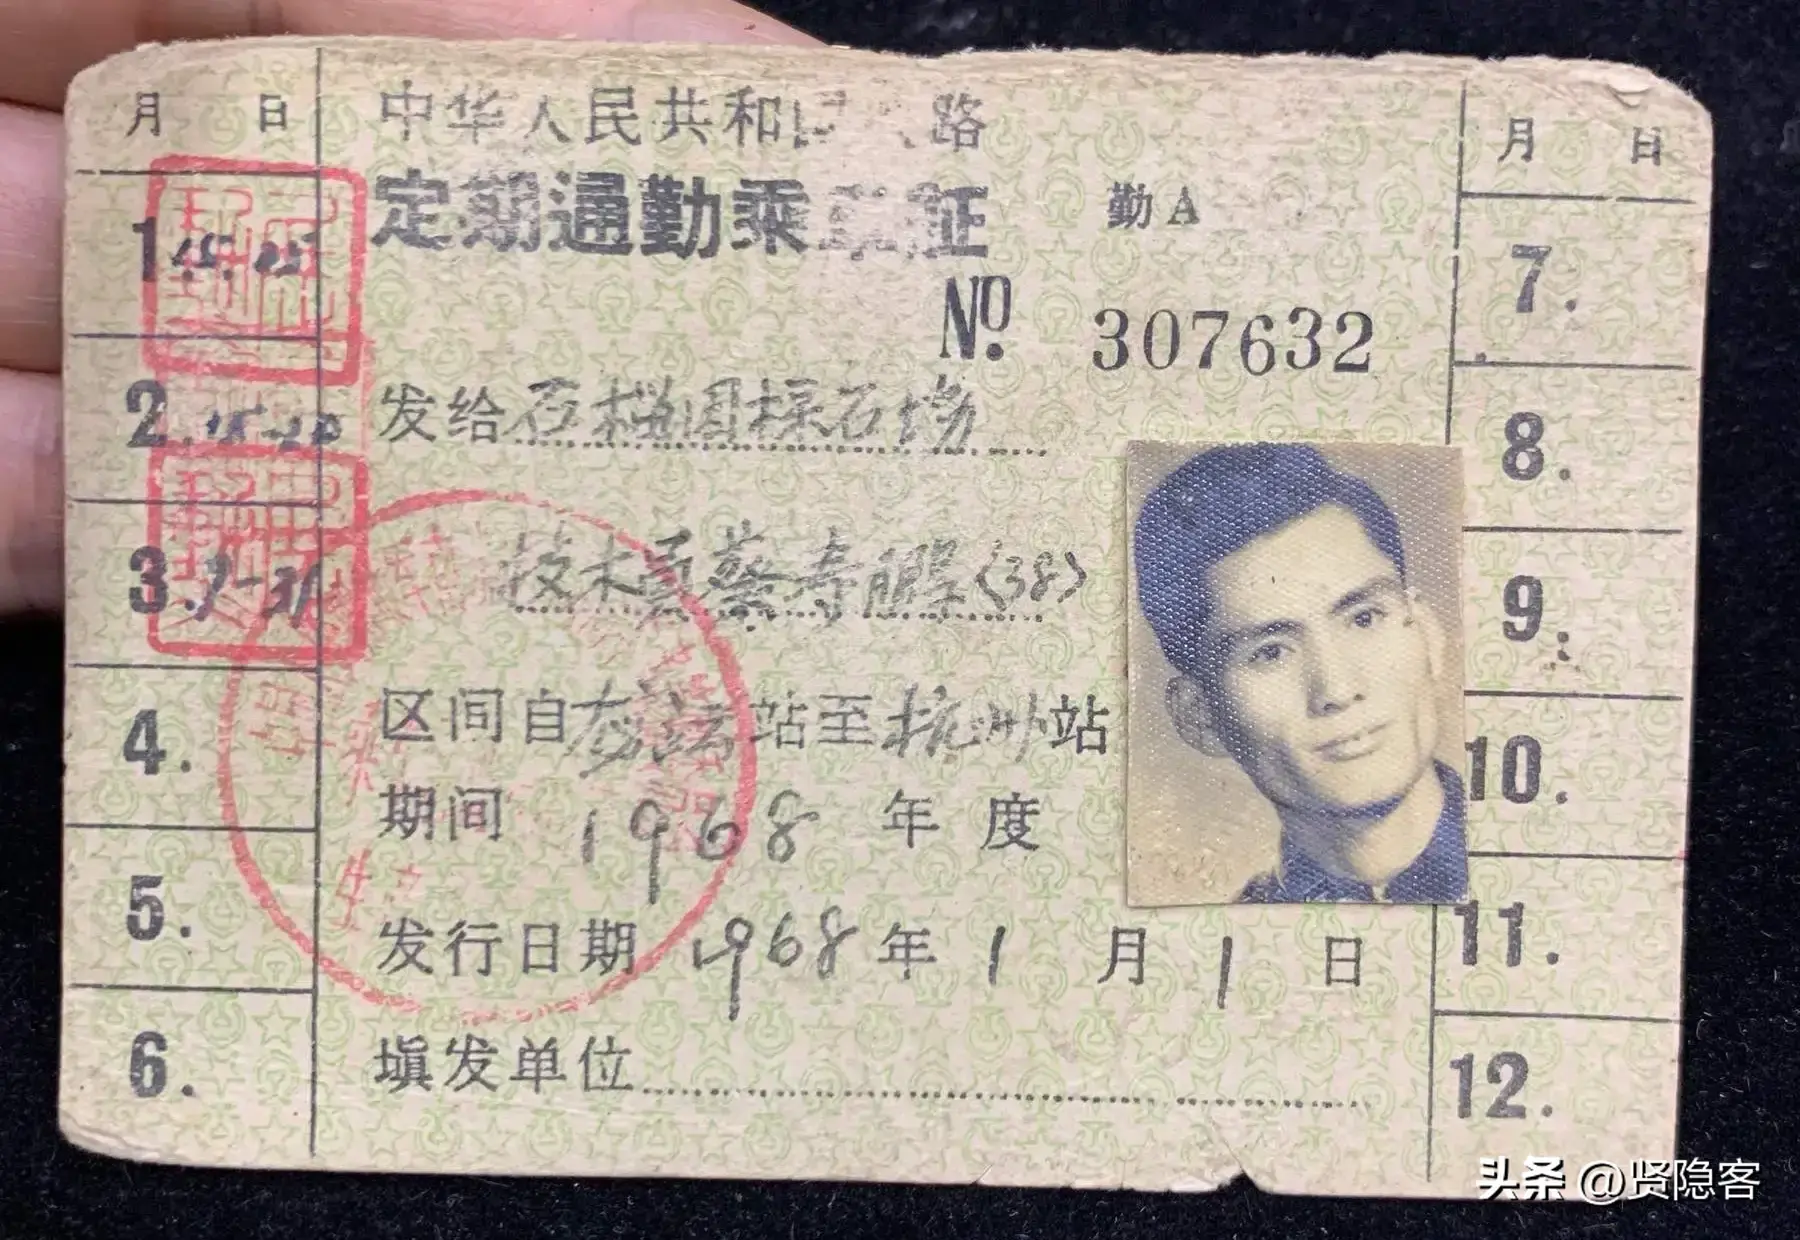 月 日
1
2.
3.
4.
5.
6.
中华人民共和 路
定期通勤乘 证 勤A
№ 307632
发给 石 园採石场
技术员蔡寿鹏(38)
区间自 站至杭州站
期间 1968 年度
发行日期 1968年1月1日
填发单位
月 日
7.
8.
9.
10.
11.
12.
头条 @贤隐客